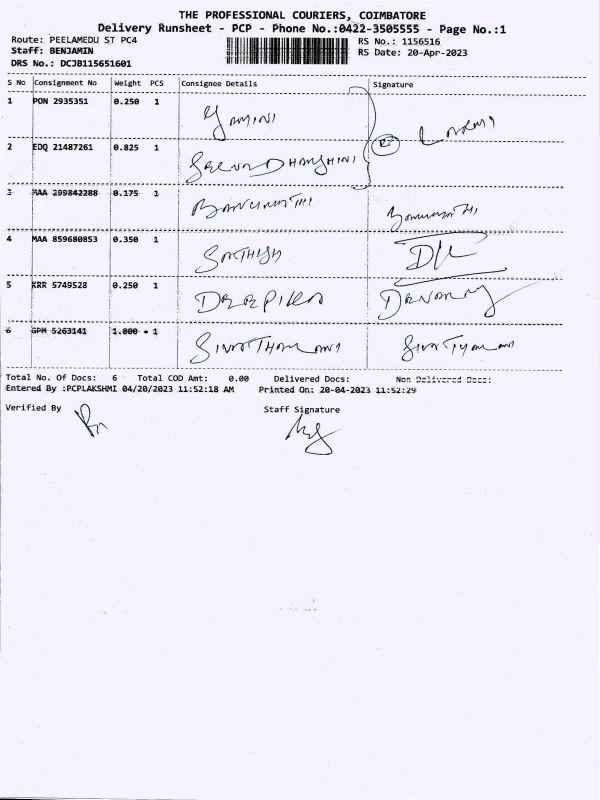 THE PROFESSIONAL COURIERS, COIMBATORE
Delivery Runsheet - PCP - Phone No.:0422-3505555 - Page No.:1
Route: PEELAMEDU ST PC4 RS No.: 1156516
Staff: BENJAMIN RS Date: 20-Apr-2023
DRS No.: DCJB115651601
S No Consignment No Weight PCS Consignee Details Signature
1 PON 2935351 0.250 1 Yamini
2 EDQ 21487261 0.825 1
3 MAA 299842288 0.175 1 BANUMATHI
4 MAA 859680853 0.350 1 SATHISH
5 KRR 5749528 0.250 1 DEEPIKA
6 GPM 5263141 1.000 1
Total No. Of Docs: 6 Total COD Amt: 0.00 Delivered Docs: Non Delivered Docs:
Entered By :PCPLAKSHMI 04/20/2023 11:52:18 AM Printed On: 20-04-2023 11:52:29
Verified By Staff Signature